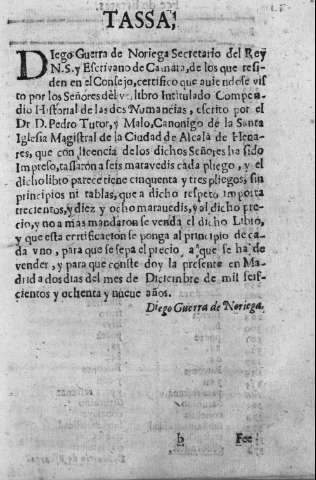 TASSA;
DIego Guerra de Noriega Secretario del Rey
N. S. y Escrivano de Camara, de los que resi-
den en el Consejo, certifico que auiendose vis
to por los Señores del vn libro Intitulado Compen
dio Historial de las dos Numancias, escrito por el
Dr D. Pedro Tutor, y Malo, Canonigo de la Santa
Iglesia Magistral de la Ciudad de Alcala de Hena-
res, que con licencia delos dichos Señores ha sido
Impreso, tassaron a seis maravedis cada pliego, y el
dicho libro parece tiene cinquenta y tres pliegos, sin
principios ni tablas, que a dicho respeto importa
trecientos, y diez y ocho maravedis, y al dicho pre-
cio, y no a mas mandaron se venda el dicho Libro,
y que esta certificacion se ponga al principio de ca-
da vno, para que se sepa el precio a que se ha de
vender, y para que conste doy la presente en Ma-
drid a dos dias del mes de Diciembre de mil seis-
cientos y ochenta y nueue años.
Diego Guerra de Noriega.
b Fee